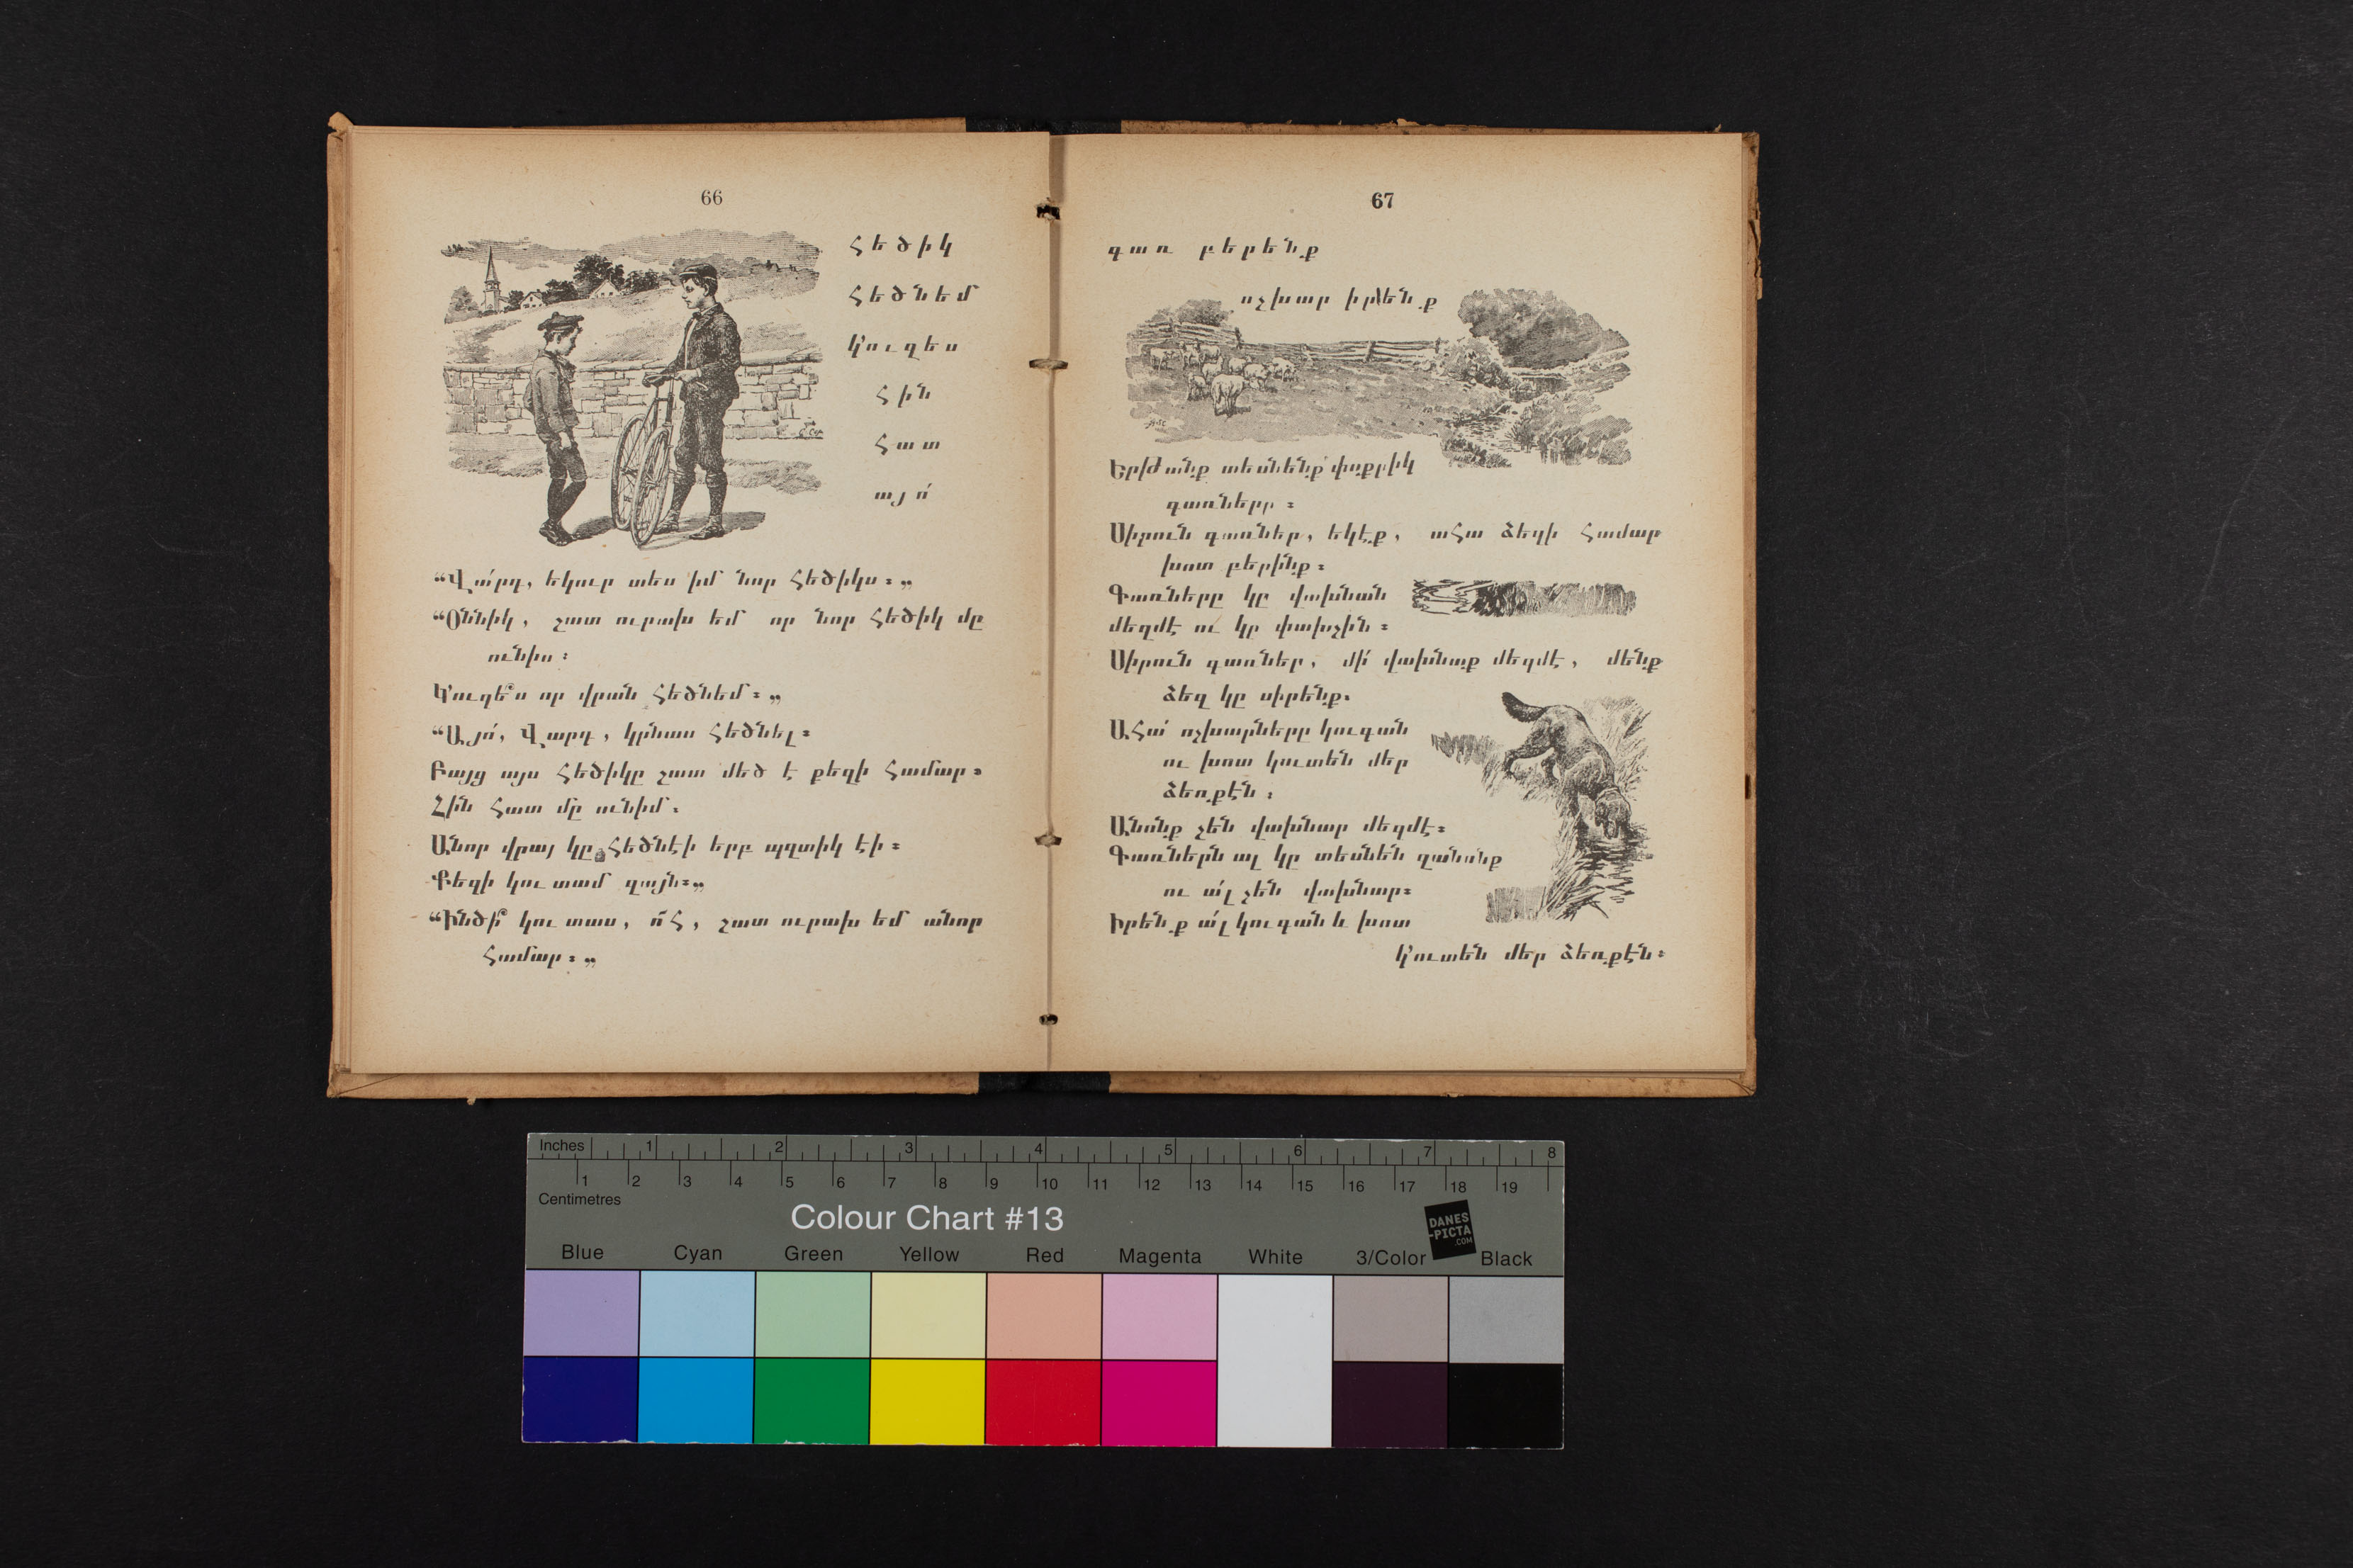 66
հեծիկ
հեծնեմ
կ'ուզես
հին
հատ
այո՛
“Վա՛րդ, եկուր տես իմ նոր հեծիկս։„
“Օննիկ, շատ ուրախ եմ որ նոր հեծիկ մը
ունիս։
Կ'ուզե՞ս որ վրան հեծնեմ։„
“Այո՛, Վարդ, կրնաս հեծնել։
Բայց այս հեծիկը շատ մեծ է քեզի համար։
Հին հատ մը ունիմ.
Անոր վրայ կը հեծնէի երբ պզտիկ էի։
Քեզի կու տամ զայն։„
“Ինծի՞ կու տաս, ո՜հ, շատ ուրախ եմ անոր
համար։„
67
գառ բերենք
ոչխար իրենք
Երթանք տեսնենք փոքրիկ
գառները։
Սիրուն գառներ, եկէք, ահա ձեզի համար
խոտ բերինք։
Գառները կը վախնան
մեզմէ ու կը փախչին։
Սիրուն գառներ, մի՛ վախնաք մեզմէ, մենք
ձեզ կը սիրենք.
Ահա՛ ոչխարները կուգան
ու խոտ կուտեն մեր
ձեռքէն։
Անոնք չեն վախնար մեզմէ։
Գառներն ալ կը տեսնեն զանոնք
ու ա՛լ չեն վախնար։
Իրենք ա՛լ կու գան և խոտ
կ'ուտեն մեր ձեռքէն։
Inches 1 2 3 4 5 6 7 8
1 2 3 4 5 6 7 8 9 10 11 12 13 14 15 16 17 18 19
Centimetres
Colour Chart #13
DANES
-PICTA
.COM
Blue Cyan Green Yellow Red Magenta White 3/Color Black